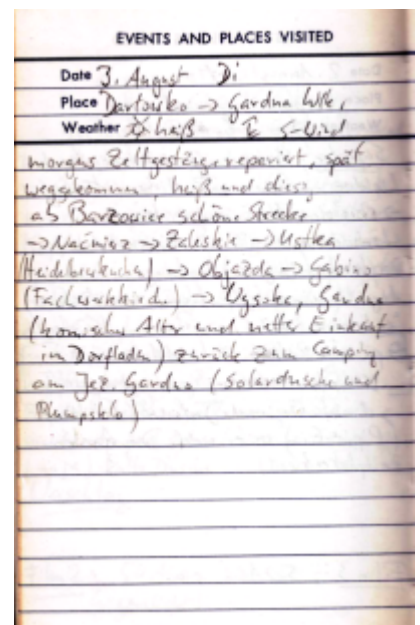 EVENTS AND PLACES VISITED
Date 3. August Di
Place Dartowko -> Gardna Wlk.,
Weather heiß S-Wind
morgens Zeltgestänge repariert, spät
weggekommen, heiß und diesig
ab Barzowice schöne Strecke
-> Naćmierz -> Zaleskie -> Ustka
(Heidelbeerkuchen) -> Objazda -> Gabino
(Fachwerkkirche) -> Wysoka, Gardna
(komischer Alter und netter Einkauf
im Dorfladen) zurück zum Camping
am Jez. Gardno (Solardusche und
Plumpsklo)